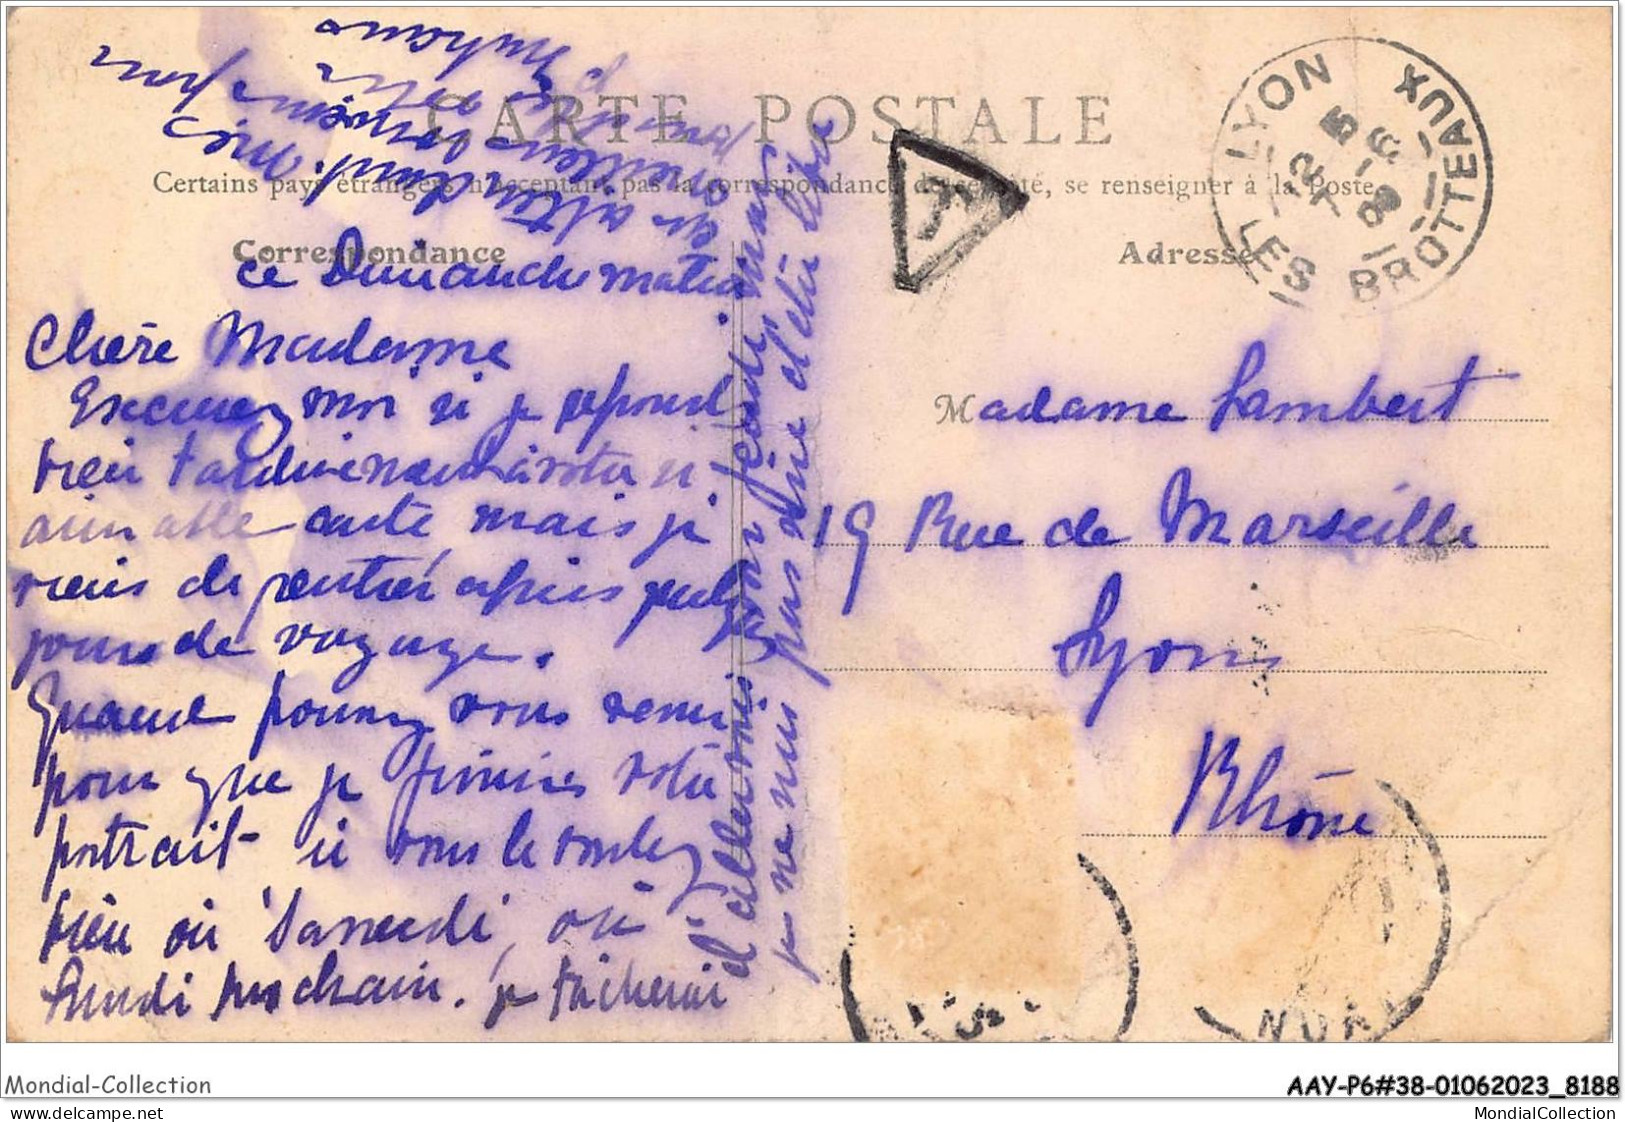 CARTE POSTALE
Certains pays étrangers n'acceptant pas la correspondance de ce côté, se renseigner à la Poste
Correspondance
Adresse
LYON BROTTEAUX
LES
ce Dimanche matin
Chère Madame
Excusez moi si je réponds
bien tardivement à votre si
aimable carte mais je
viens de rentrer après quelques
jours de voyage.
Quand pourrez vous venir
pour que je finisse votre
portrait si vous le voulez
bien ou Samedi, ou
Lundi prochain. je tâcherai
d'aller
je ne suis pas sûre d'être libre
en attendant
Madame Lambert
19 Rue de Marseille
Lyon
Rhône
T
Mondial-Collection
AAY-P6#38-01062023_8188
MondialCollection